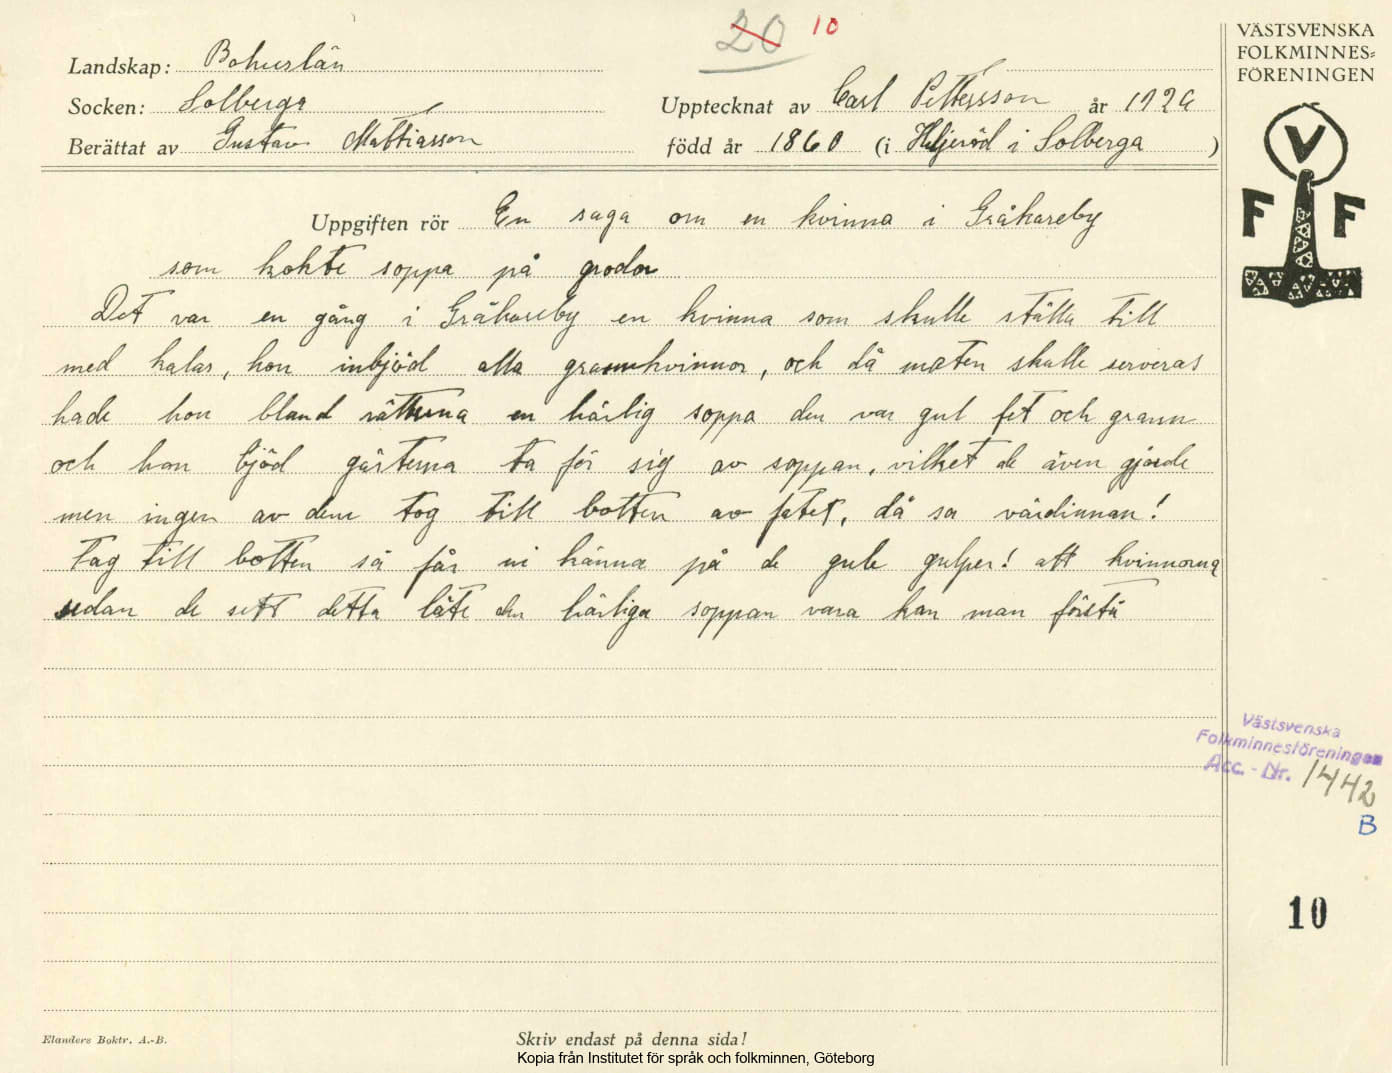 20 10
VÄSTSVENSKA
FOLKMINNES=
FÖRENINGEN
Landskap: Bohuslän
Socken: Solberga
Upptecknat av Carl Pettersson år 1926
Berättat av Gustav Mattiasson
född år 1860 (i Heljeröd i Solberga)
V
F F
Uppgiften rör En saga om en kvinna i Gråkareby
som kokte soppa på grodor
Det var en gång i Gråkareby en kvinna som skulle ställa till
med kalas, hon inbjöd alla grannkvinnor, och då maten skulle serveras
hade hon bland rätterna en härlig soppa den var gul fet och grann
och hon bjöd gästerna ta för sig av soppan, vilket de även gjorde
men ingen av dem tog till botten av fatet, då sa värdinnan!
Tag till botten så får ni känna på de gule gulper! att kvinnorna
sedan de sett detta läte den härliga soppan vara kan man förstå
Västsvenska
Folkminnesföreningen
Acc. - Nr. 1442
B
10
Elanders Boktr. A.-B.
Skriv endast på denna sida!
Kopia från Institutet för språk och folkminnen, Göteborg